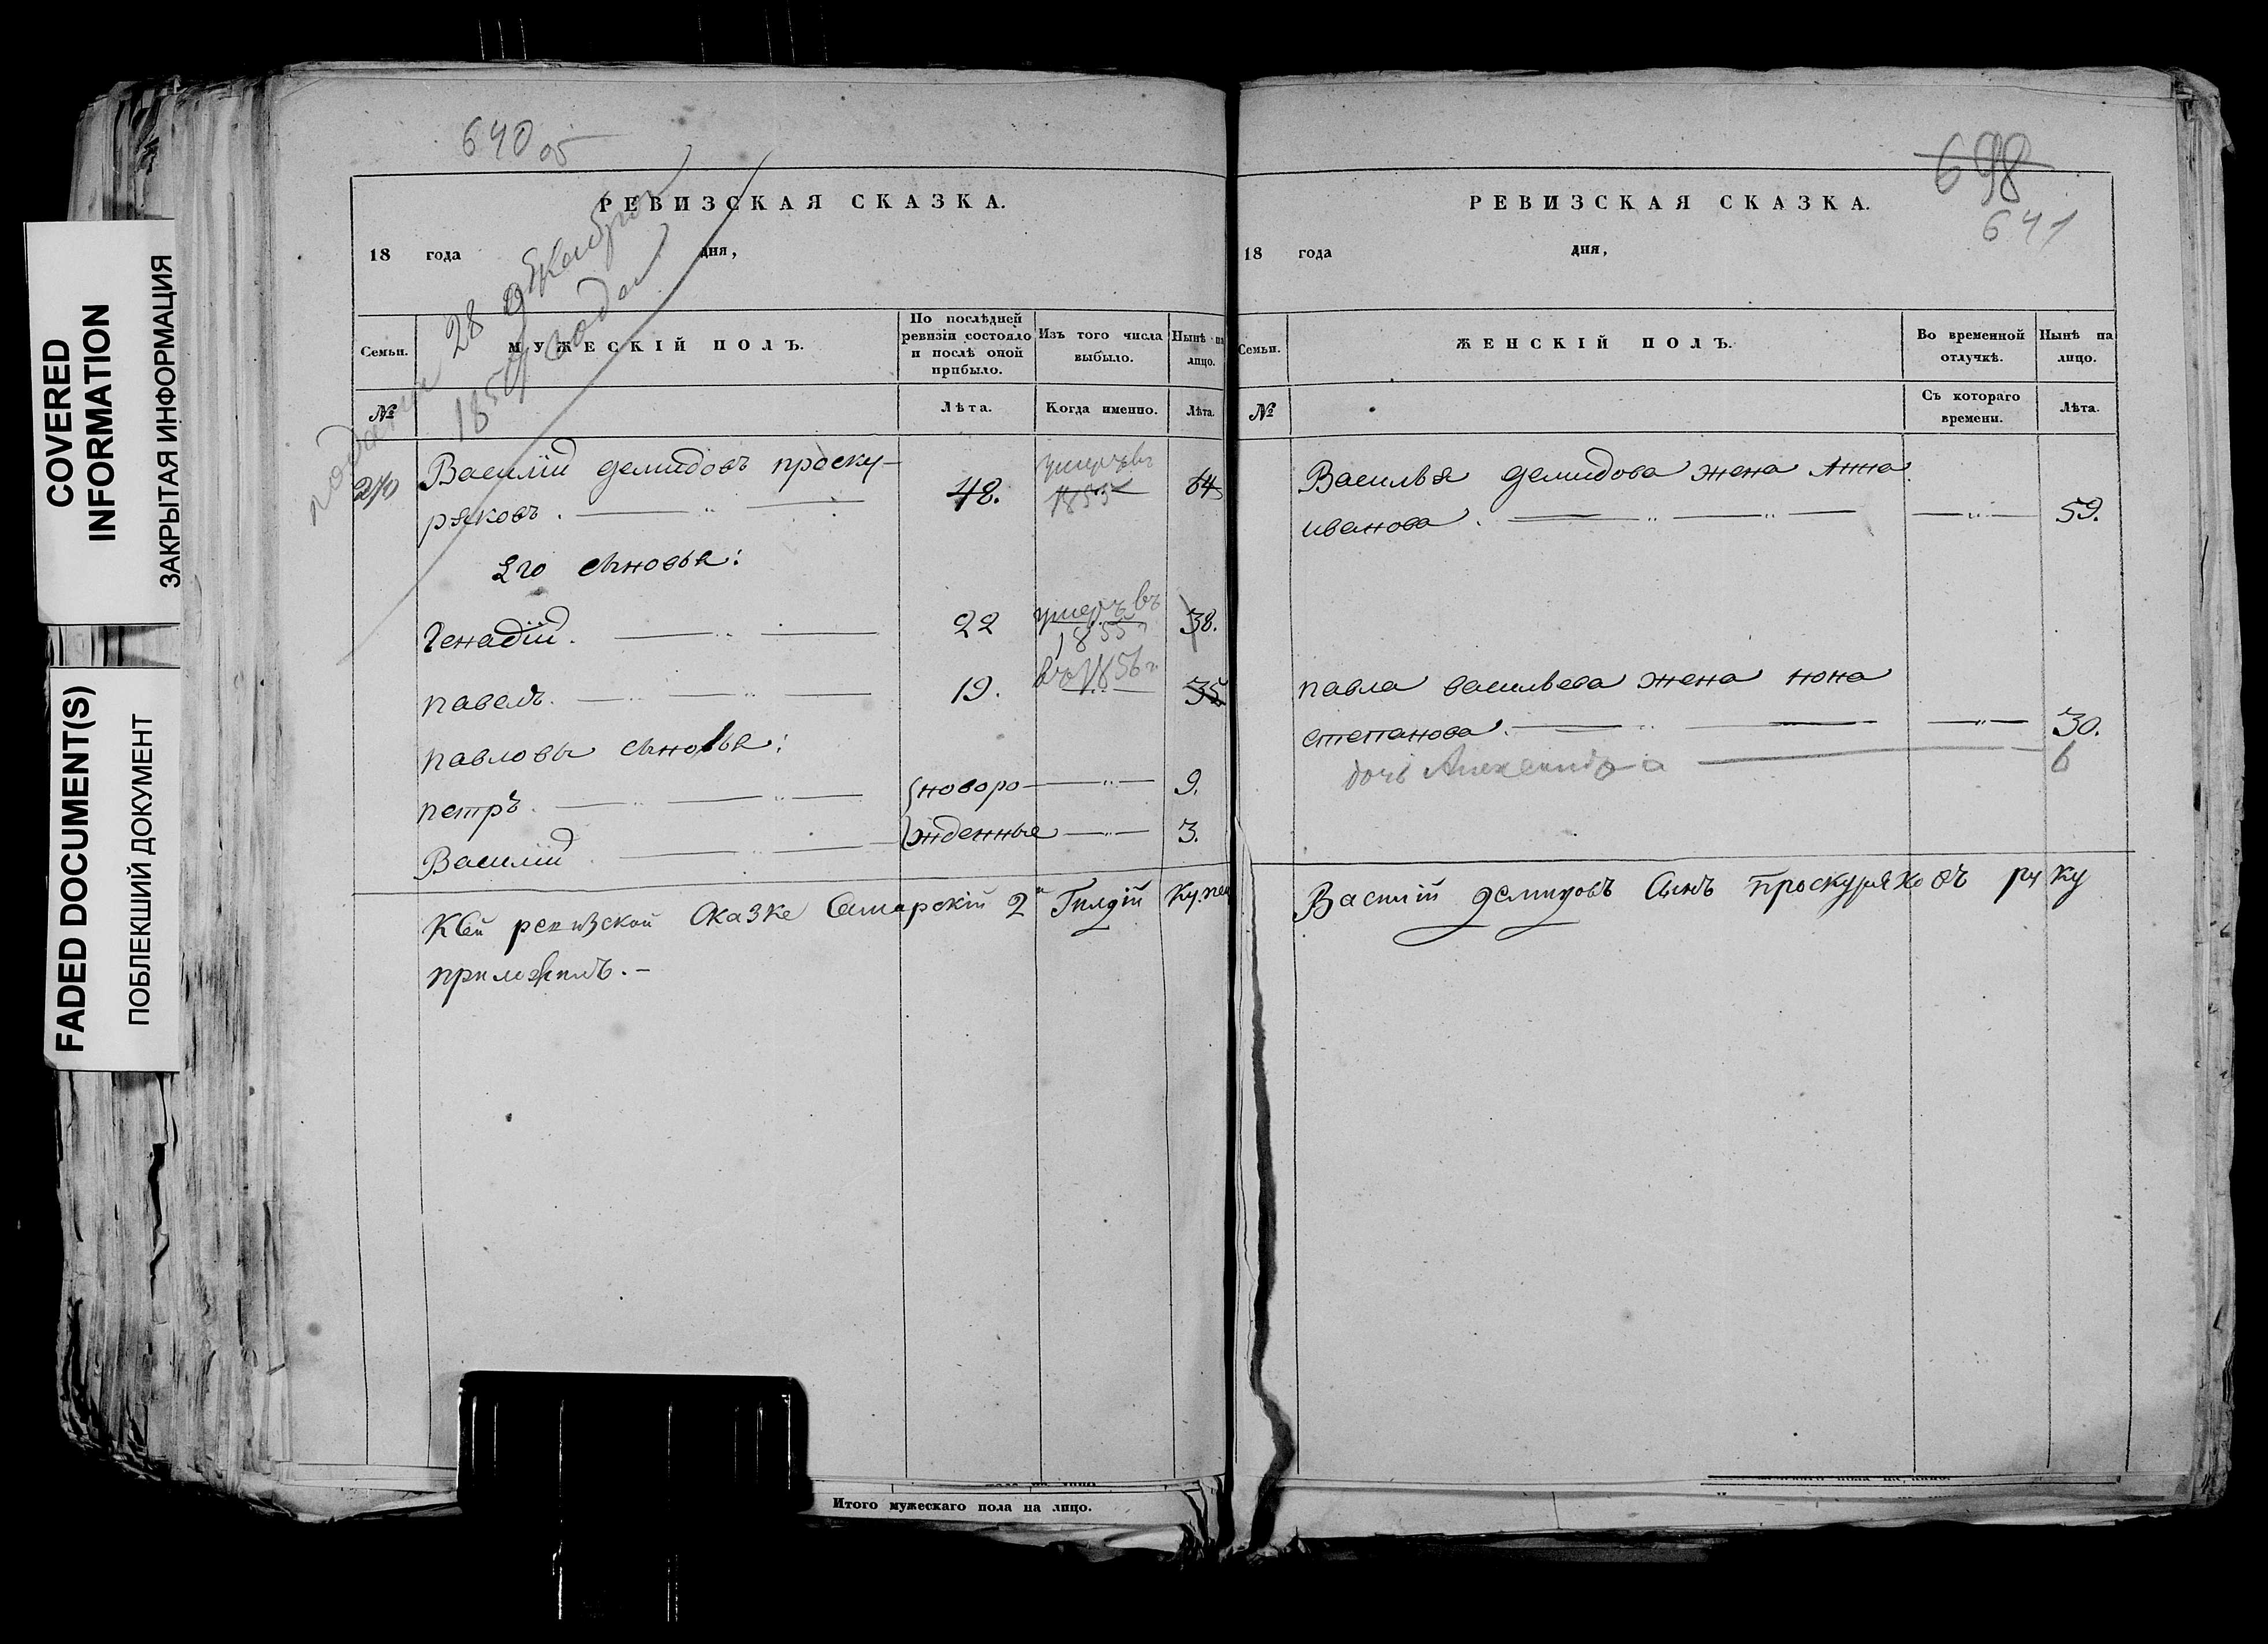 COVERED
INFORMATION
ЗАКРЫТАЯ ИНФОРМАЦИЯ
FADED DOCUMENT(S)
ПОБЛЕКШИЙ ДОКУМЕНТ
640 об
РЕВИЗСКАЯ СКАЗКА.
18 года дня,
28 декабря
1850 года
Семьи. МУЖЕСКІЙ ПОЛЪ. По послѣдней ревизіи состояло и послѣ оной прибыло. Изъ того числа выбыло. Нынѣ на лицо.
№ Лѣта. Когда именно. Лѣта.
Василій демидовъ проску-
ряковъ. 48. умеръ въ 1855 64
Его сыновья:
Генадій. 22 умеръ въ 1855 38.
павелъ. 19. въ 1856 г. 35
павловы сыновья:
петръ. новоро- 9.
Василій жденные 3.
К сей ревизской сказке Самарскій 2й Гилдій Купец
приложилъ. -
Итого мужескаго пола на лицо.
698
641
РЕВИЗСКАЯ СКАЗКА.
18 года дня,
Семьи. ЖЕНСКІЙ ПОЛЪ. Во временной отлучкѣ. Нынѣ на лицо.
№ Съ котораго времени. Лѣта.
Василья демидова жена Анна
иванова. 59.
павла васильева жена нона
степанова. 30.
дочь Александра 6
Василій демидовъ Сынъ Проскуряковъ руку